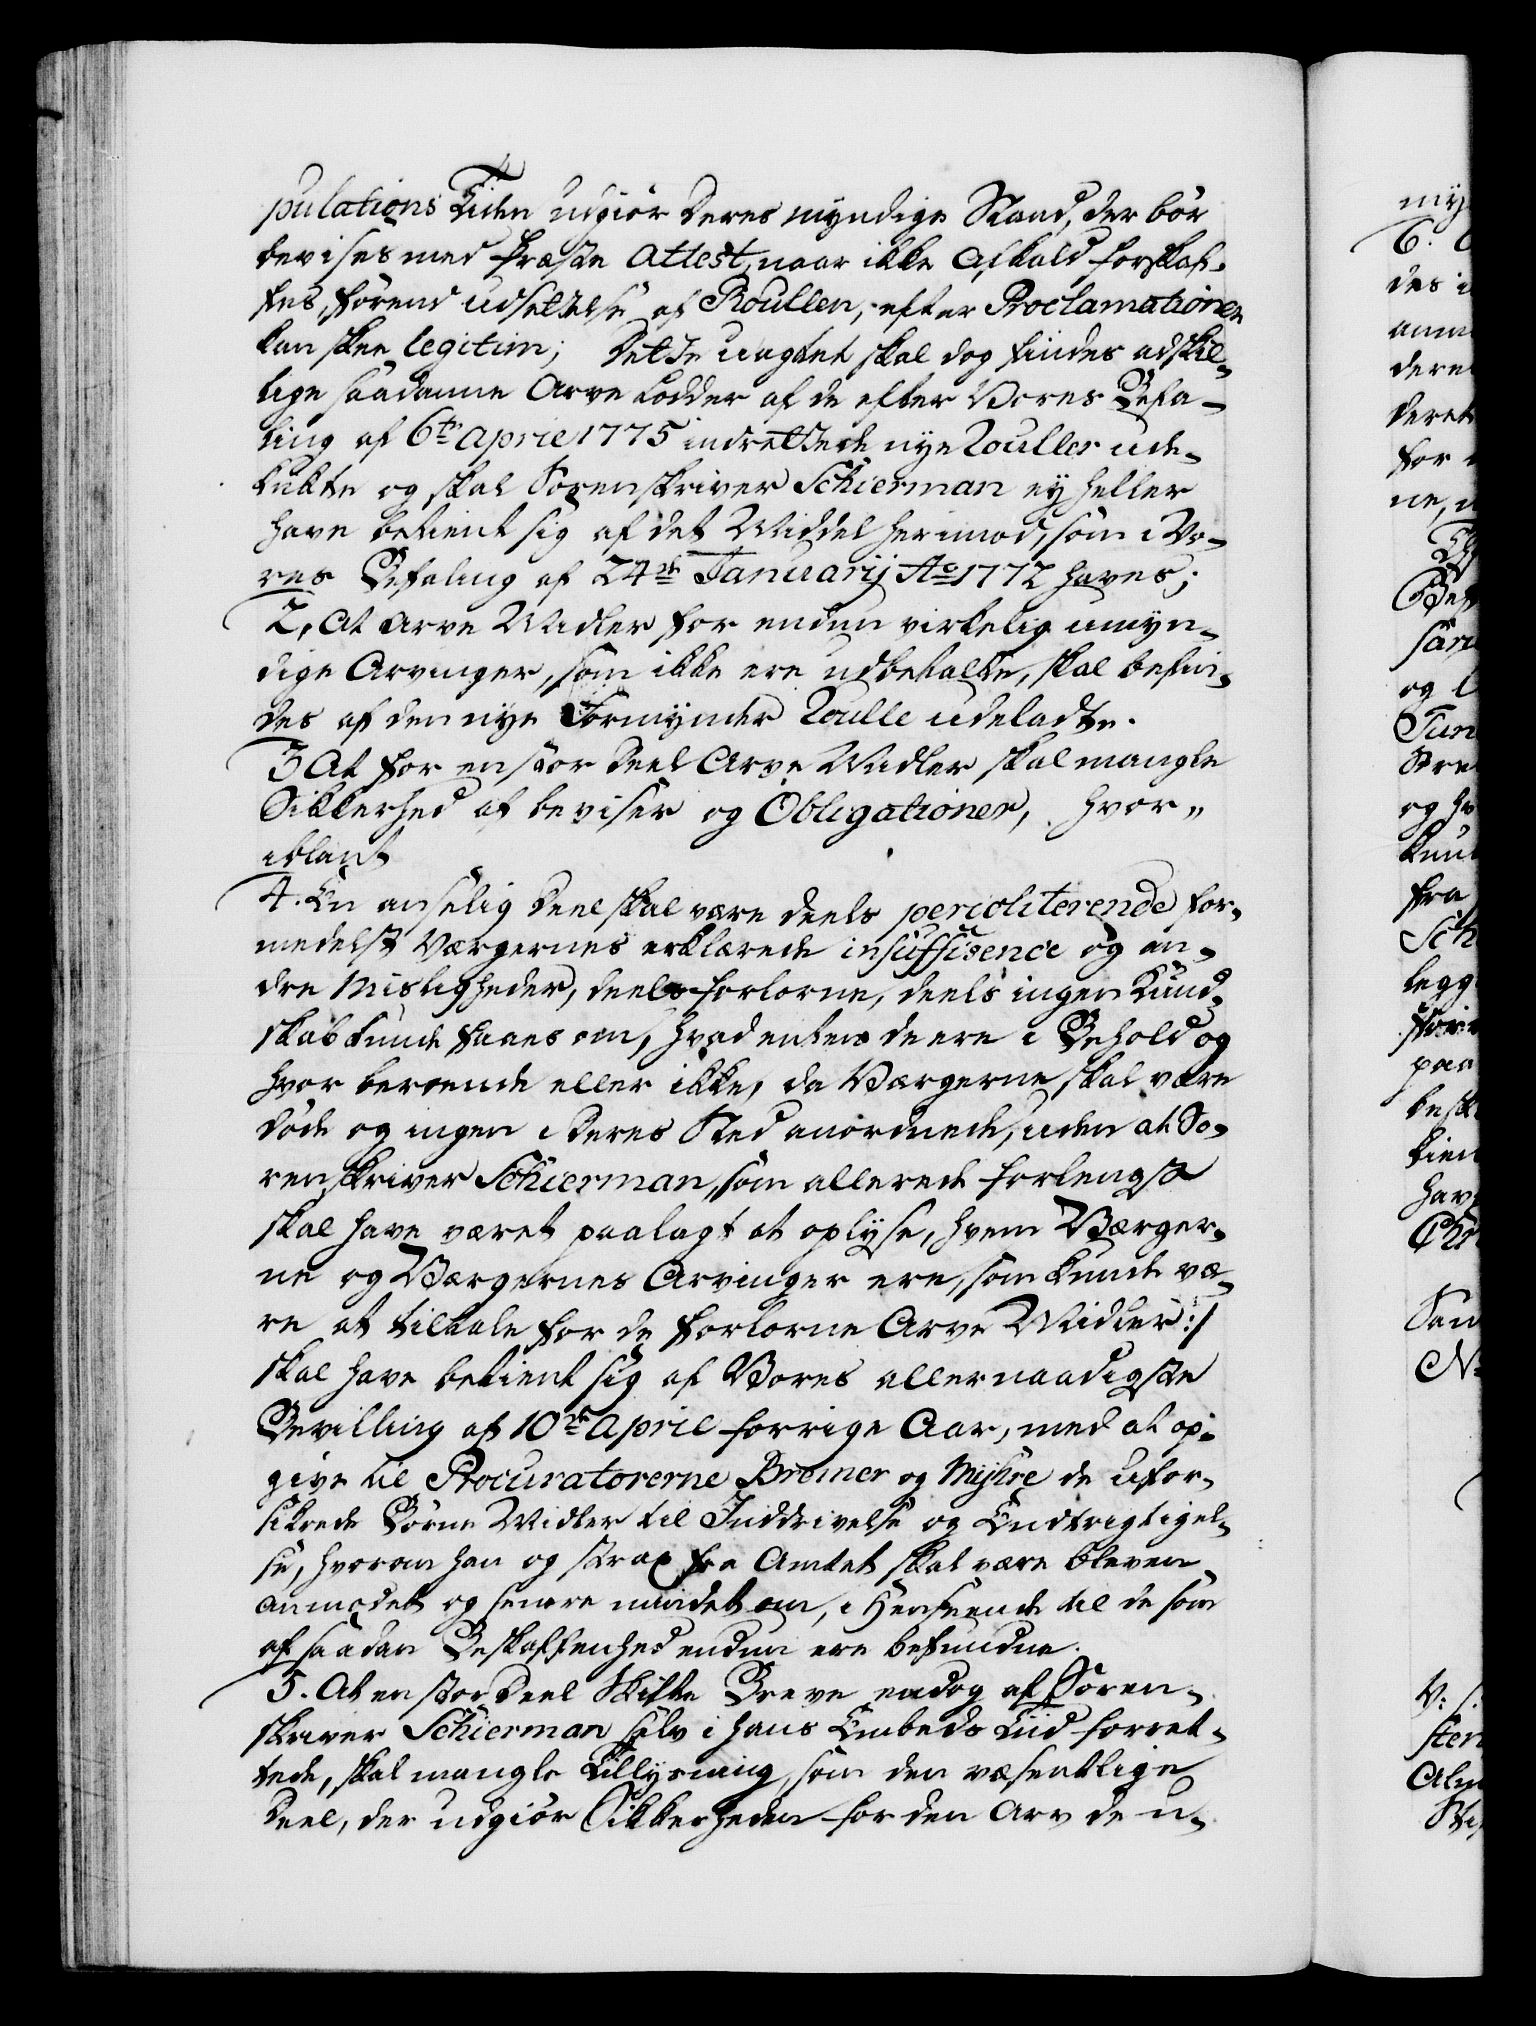 pulations Tiden udgiør deres myndige Stand, der bør
bevises med Præste Attest, naar ikke Afkald forskaf-
fes, førend udsettelse af Roullen, efter Proclamationer
kan skee legitim; Dette uagtet skal dog findes adskil-
lige saadanne Arve Lodder af de efter Vores Befa-
ling af 6te April 1775 indrettede nye Rouller ude-
lukte og skal Sorenskriver Schierman ey heller
have betient sig af det Middel herimod, som i Vo-
res Befaling af 24de Januarij Ao 1772 haves;
2, At Arve Midler for endnu virkelig umyn-
dige Arvinger, som ikke ere udbetalte, skal befin-
des af den nye Formynder Roulle udeladte.
3 At for en stor Deel Arve Midler skal mangle
Sikkerhed af beviser og Obligationer, hvor"
iblant
4. En anselig Deel skal være deels pericliterende for-
medelst Værgernes erklærede insuffisence og an-
dre Misligheder, deels forlorne, deels ingen Kund-
skab kunde faaes om, hvad enten de ere i Behold og
hvor beroende eller ikke, da Værgerne skal være
døde og ingen i deres Sted anordnede, uden at So-
renskriver Schierman, som allerede forlengst
skal have været paalagt at oplyse, hvem Værger-
ne og Værgernes Arvinger ere, som kunde væ-
re at tiltale for de forlorne Arve Midler :/
skal have betient sig af Vores allernaadigste
Bevilling af 10de April forrige Aar, med at op-
give til Procuratorerne Bremer og Myhre de ufor-
sikrede Børne Midler til Inddrivelse og Endtrigtigel-
se, hvorom han og strax fra Amtet skal være bleven
anmodet og senere mindet om, i Henseende til de som
af saadan Beskaffenhed endnu ere befundne.
5. At en stor Deel Skifte Breve endog af Soren-
skriver Schierman selv i hans Embeds Tiid forret-
tede, skal mangle Tillysning, som den væsentlige
Deel, der udgiør Sikkerheden for den Arv de u-